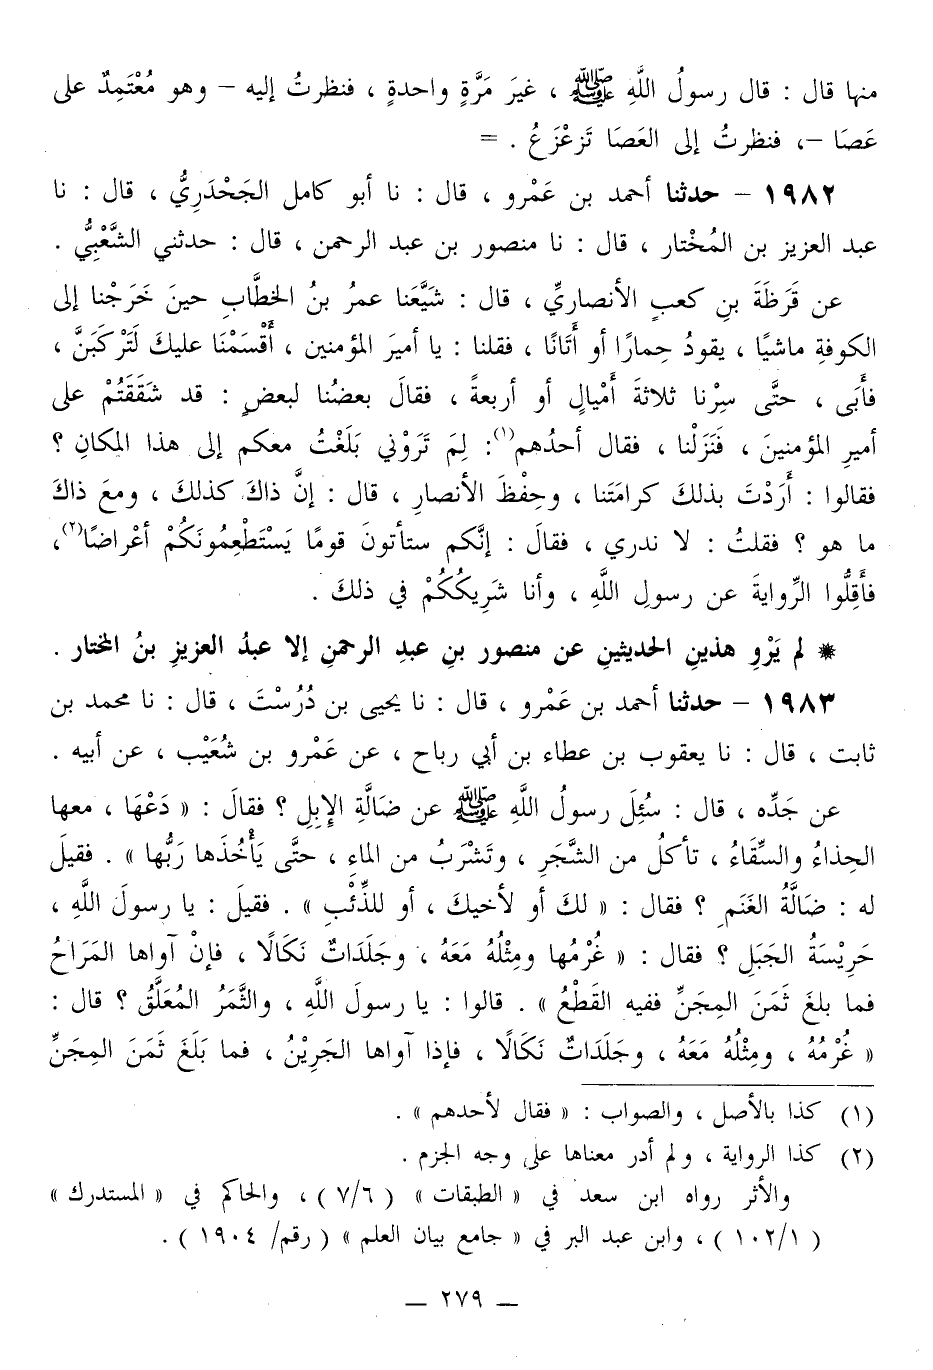 منها قال : قال رسولُ اللَّهِ ﷺ ، غيرَ مَرَّةٍ واحدةٍ ، فنظرتُ إليه – وهو مُعْتَمِدٌ على
عَصَا –، فنظرتُ إلى العَصَا تَزعْزَعُ . =
١٩٨٢ – حدثنا أحمد بن عَمْرو ، قال : نا أبو كامل الجَحْدَرِيُّ ، قال : نا
عبد العزيز بن المُخْتار ، قال : نا منصور بن عبد الرحمن ، قال : حدثني الشَّعْبِيُّ .
عن قَرَظَةَ بنِ كعبٍ الأنصاريِّ ، قال : شَيَّعَنا عمرُ بنُ الخطَّابِ حينَ خَرَجْنا إلى
الكوفةِ ماشيًا ، يقودُ حِمارًا أو أَتَانًا ، فقلنا : يا أميرَ المؤمنين ، أَقْسَمْنَا عليكَ لَتَرْكَبَنَّ ،
فأَبَى ، حتَّى سِرْنا ثلاثةَ أَمْيالٍ أو أربعةً ، فقالَ بعضُنا لبعضٍ : قد شَقَقَتُمْ على
أميرِ المؤمنينَ ، فَنَزَلْنا ، فقال أحدُهم(١): لِمَ تَرَوْني بَلَغْتُ معكم إلى هذا المكانِ ؟
فقالوا : أَرَدْتَ بذلكَ كرامَتَنا ، وحِفْظَ الأنصارِ ، قال : إنَّ ذاكَ كذلكَ ، ومعَ ذاكَ
ما هو ؟ فقلتُ : لا ندري ، فقالَ : إنَّكم ستأتونَ قومًا يَسْتَطْعِمُونَكُمْ أعْراضًا(٢)،
فأَقِلُّوا الرِّوايةَ عن رسولِ اللَّهِ ، وأنا شَرِيكُكُمْ في ذلكَ .
* لم يَرْوِ هذينِ الحديثينِ عن منصور بنِ عبدِ الرحمنِ إلا عبدُ العزيزِ بنُ المختار .
١٩٨٣ – حدثنا أحمد بن عَمْرو ، قال : نا يحيى بن دُرُسْتَ ، قال : نا محمد بن
ثابت ، قال : نا يعقوب بن عطاء بن أبي رباح ، عن عَمْرو بن شُعَيْب ، عن أبيه .
عن جَدِّه ، قال : سُئِلَ رسولُ اللَّهِ ﷺ عن ضَالَّةِ الإِبِلِ ؟ فقالَ : « دَعْهَا ، معها
الحِذاءُ والسِّقَاءُ ، تأكلُ من الشَّجَرِ ، وتَشْرَبُ من الماءِ ، حتَّى يَأْخُذَها رَبُّها » . فقيلَ
له : ضَالَّةُ الغَنَمِ ؟ فقال : « لكَ أو لأخيكَ ، أو للذِّئْبِ » . فقيلَ : يا رسولَ اللَّهِ ،
حَرِيْسَةُ الجَبَلِ ؟ فقال : « غُرْمُها ومِثْلُهُ مَعَهُ ، وجَلَدَاتٌ نَكَالًا ، فإنْ آواها المَرَاحُ
فما بلغَ ثَمَنَ المِجَنِّ ففيه القَطْعُ » . قالوا : يا رسولَ اللَّهِ ، والثَّمَرُ المُعَلَّقُ ؟ قال :
« غُرْمُهُ ، ومِثْلُهُ مَعَهُ ، وجَلَدَاتٌ نَكَالًا ، فإذا آواها الجَرِيْنُ ، فما بَلَغَ ثَمَنَ المِجَنِّ
(١) كذا بالأصل ، والصواب : « فقال لأحدهم » .
(٢) كذا الرواية ، ولم أدر معناها على وجه الجزم .
والأثر رواه ابن سعد في « الطبقات » ( ٧/٦ ) ، والحاكم في « المستدرك »
( ١٠٢/١ ) ، وابن عبد البر في « جامع بيان العلم » ( رقم/ ١٩٠٤ ) .
— ٢٧٩ —